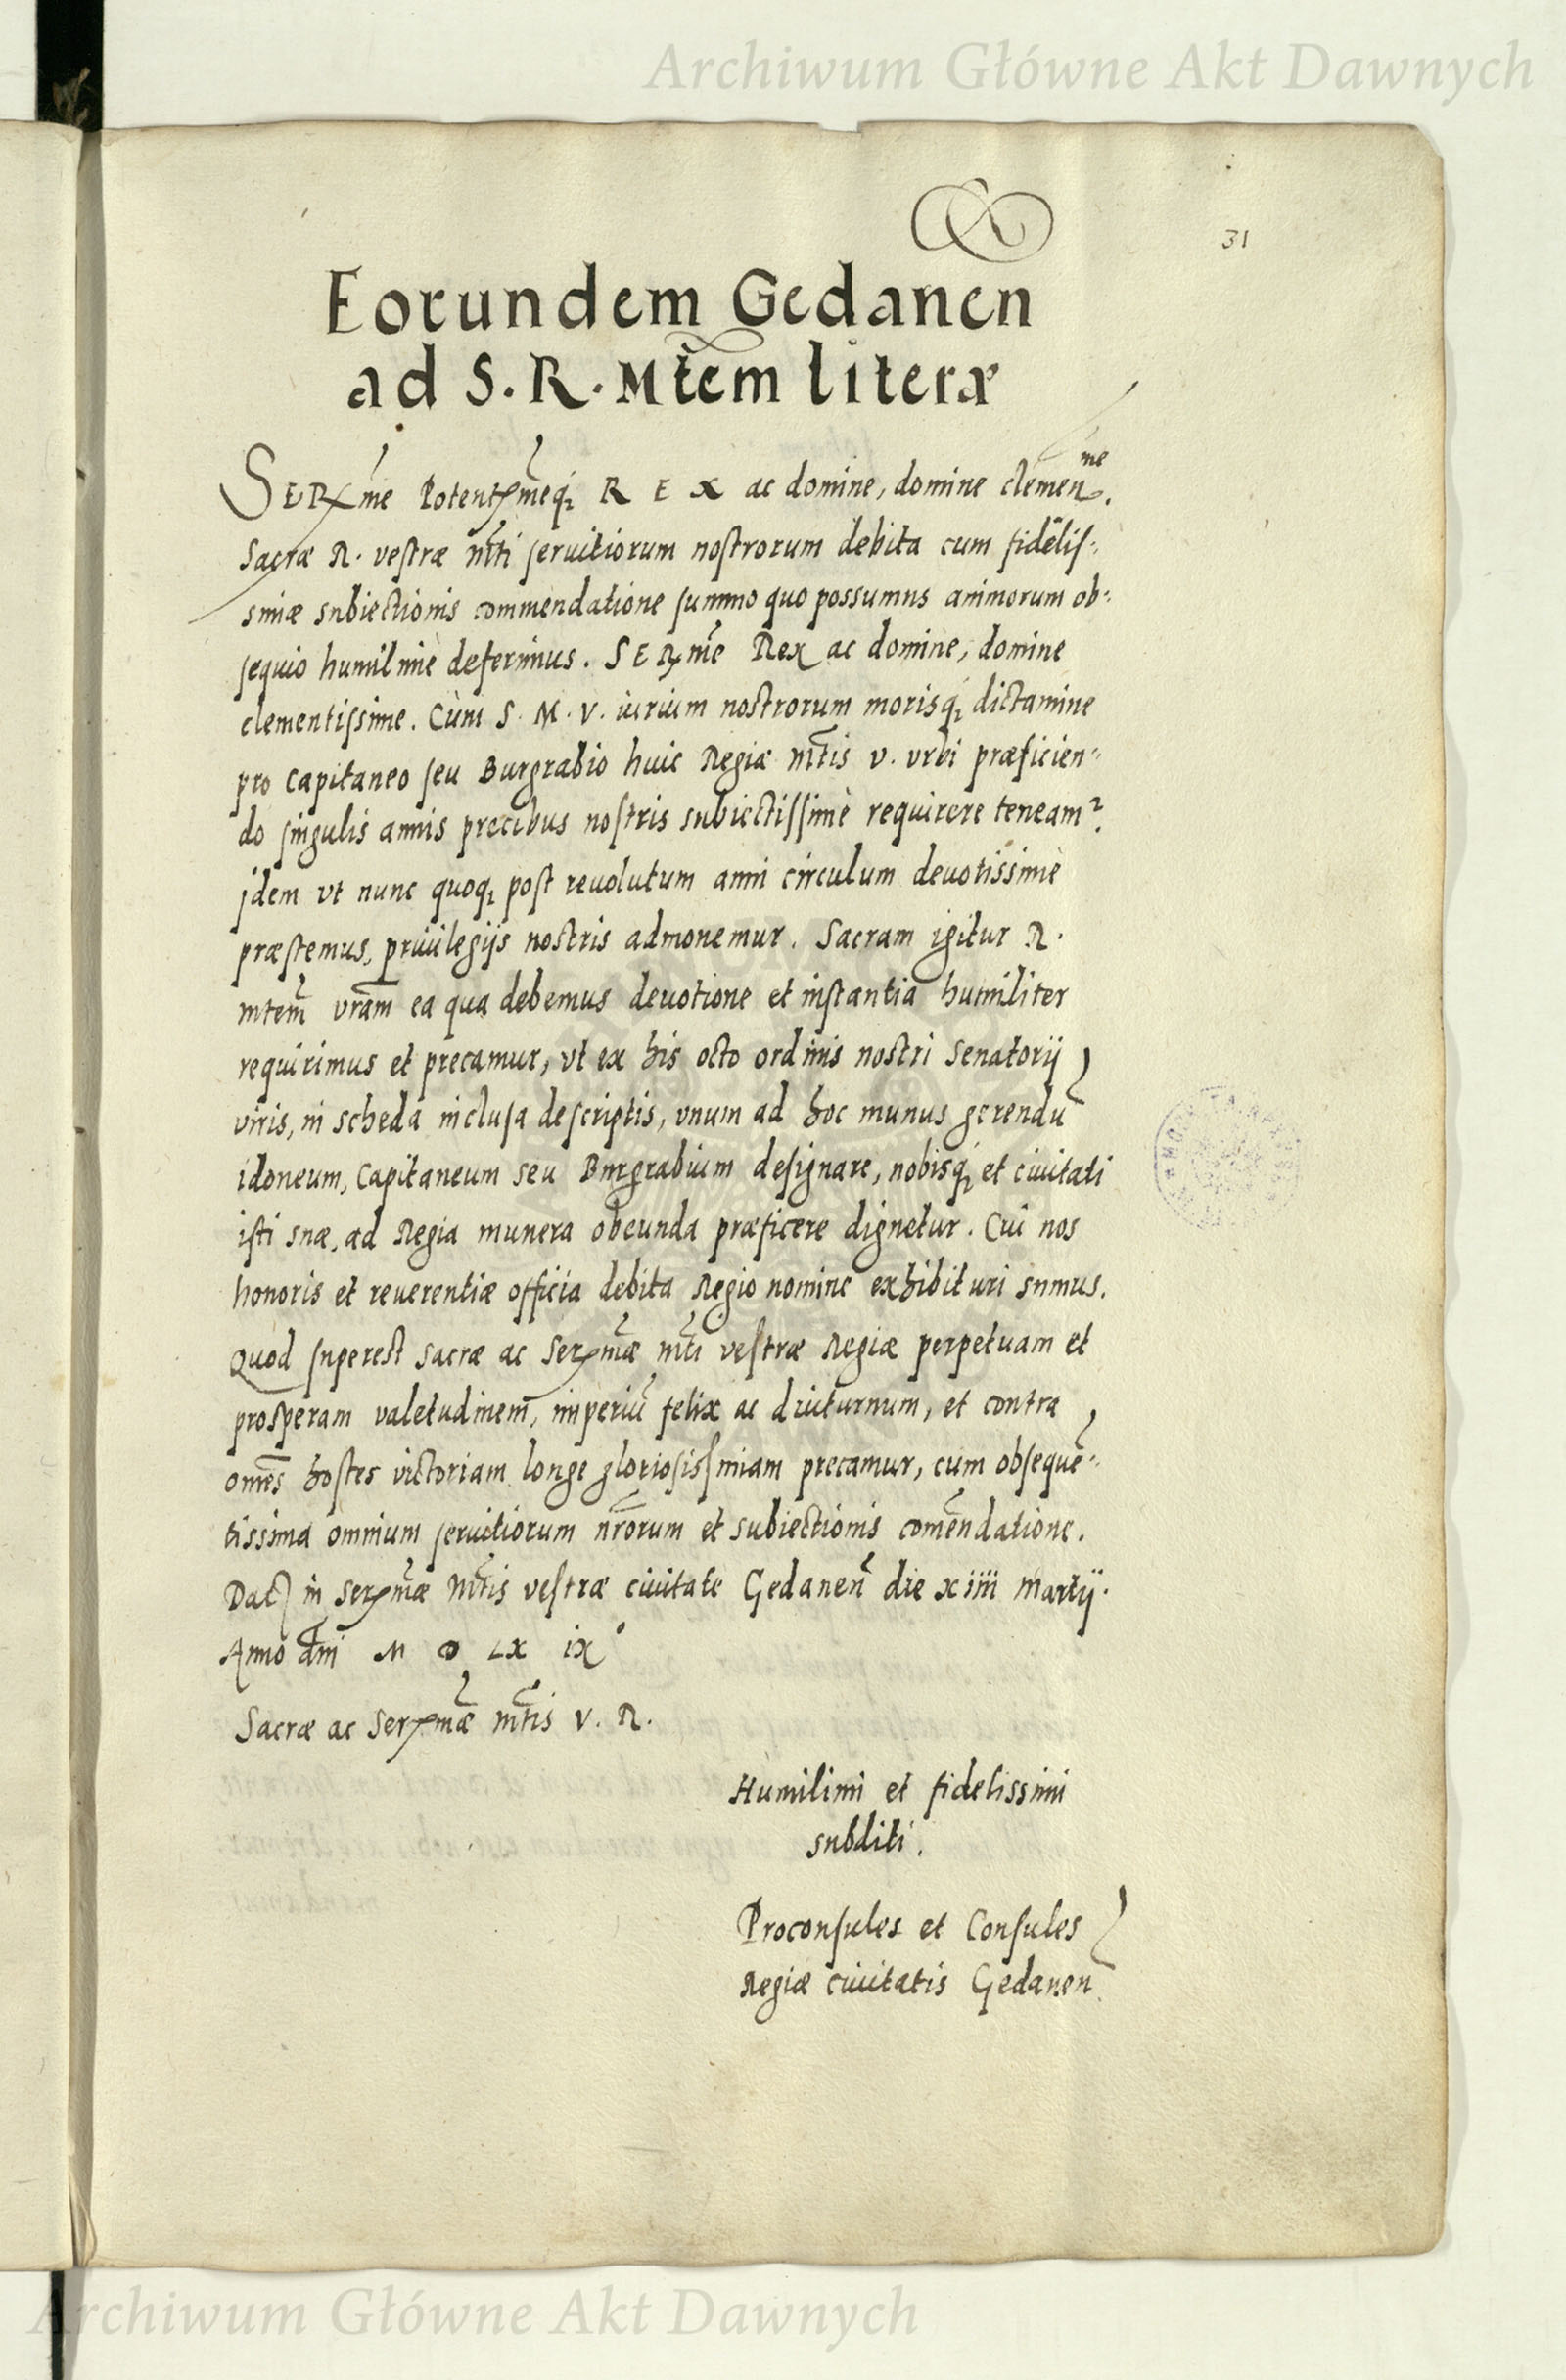 Archiwum Główne Akt Dawnych
31
Eorundem Gedanen
ad S. R. Mtem literæ
SERme Potentmeq; REX ac domine, domine clemenme.
Sacræ R. vestræ Mti seruitiorum nostrorum debita cum fidelis-
simæ subiectionis commendatione summo quo possumus animorum ob-
sequio humilimè deferimus. SERme Rex ac domine, domine
clementissime. Cùm S. M. V. iurium nostrorum morisq; dictamine
pro Capitaneo seu Burgrabio huic Regiæ Mtis V. vrbi præficien-
do singulis annis precibus nostris subiectissimè requirere teneam2.
jdem vt nunc quoq; post reuolutum anni circulum deuotissimè
præstemus, priuilegijs nostris admonemur. Sacram igitur R.
mtem vram ea qua debemus deuotione et instantia humiliter
requirimus et precamur, vt ex his octo ordinis nostri Senatorij
viris, in scheda inclusa descriptis, vnum ad hoc munus gerendū
idoneum, Capitaneum seu Burgrabium designare, nobisq; et ciuitati
isti suæ, ad Regia munera obeunda præficere dignetur. Cui nos
honoris et reuerentiæ officia debita Regio nomine exhibituri sumus.
Quod superest Sacræ ac Sermæ mti vestræ Regiæ perpetuam et
prosperam valetudinem, imperiū felix ac diuturnum, et contra
omēs hostes victoriam longe gloriosissimam precamur, cum obsequē-
tissima omnium seruitiorum nrorum et subiectionis comēndatione.
Dat in Sermæ Mtis vestræ ciuitate Gedanen die xiiii Martij.
Anno dni M D LX ix°
Sacræ ac Sermæ Mtis V. R.
Humilimi et fidelissimi
subditi.
Proconsules et Consules
Regiæ ciuitatis Gedanen
Archiwum Główne Akt Dawnych